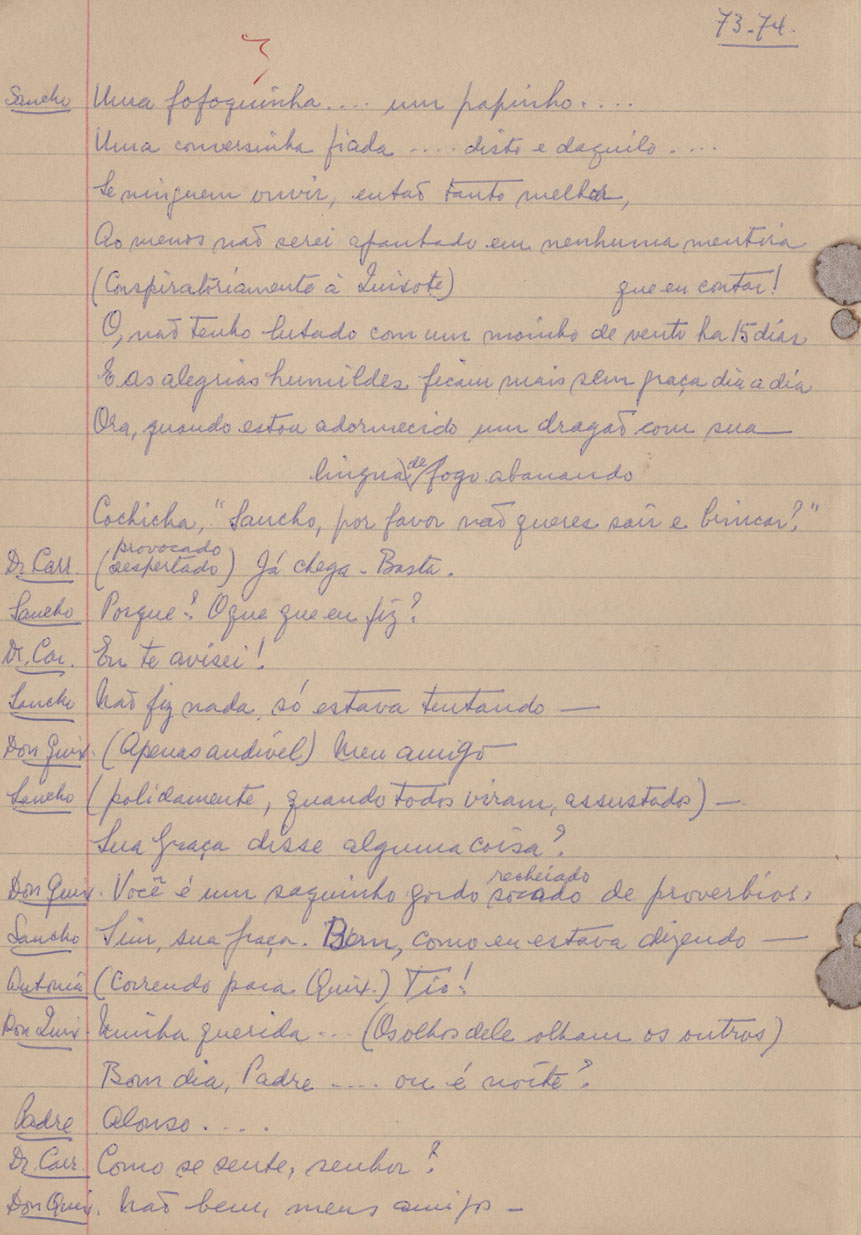 73-74.
Sancho Uma fofoquinha.... um papinho....
Uma conversinha fiada .... disto e daquilo ....
Se ninguem ouvir, entaõ tanto melhor,
Ao menos naõ serei apanhado em nenhuma mentira
(Conspiratóriamente à Quixote) que eu contar!
O, naõ tenho lutado com um moinho de vento ha 15 dias
E as alegrias humildes ficam mais sem graça dia a dia
Ora, quando estou adormecido um dragaõ com sua
lingua de fogo abanando
Cochicha, "Sancho, por favor não queres sair e brincar?"
provocado
Dr Carr. (despertado) Já chega - Basta.
Sancho Porque? O que que eu fiz?
Dr. Car. Eu te avisei!
Sancho Naõ fiz nada, só estava tentando —
Don Quix. (Apenas audível) Meu amigo
Sancho (polidamente, quando todos viram, assustados) —
Sua graça disse alguma coisa?
recheiado
Don Quix. Você é um saquinho gordo socado de proverbios.
Sancho Sim, sua graça. Bem, como eu estava dizendo —
Antonia (Correndo para Quix.) Tio!
Don Quix. Minha querida ... (Os olhos dele olham os outros)
Bom dia, Padre .... ou é noite?
Padre Alonso....
Dr. Carr. Como se sente, senhor?
Don Quix. Naõ bem, meus amigos -